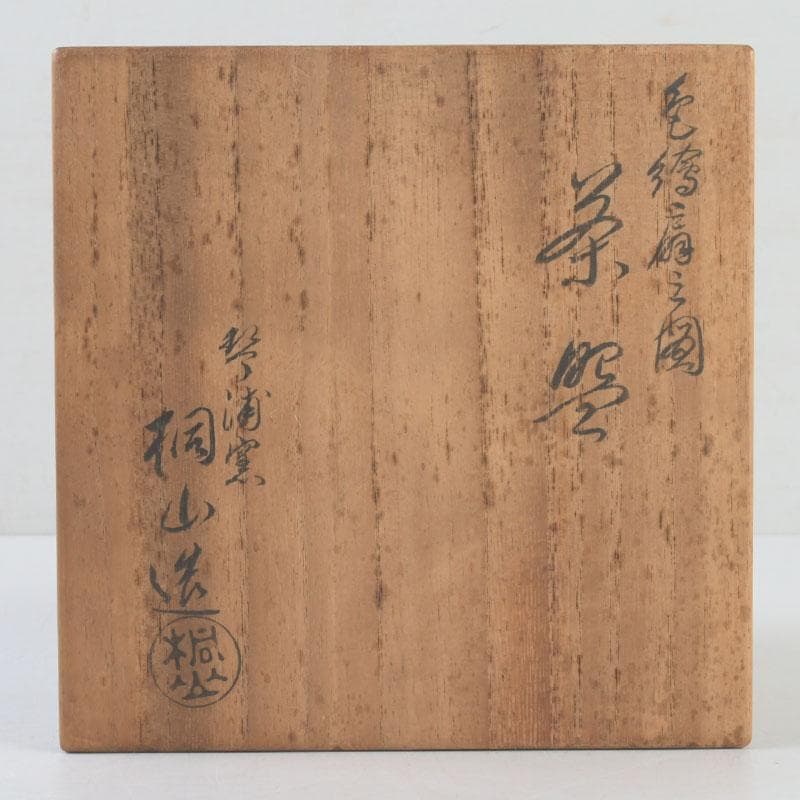 色繪扇之圖
茶盌
琴浦窯
桐山造
桐山